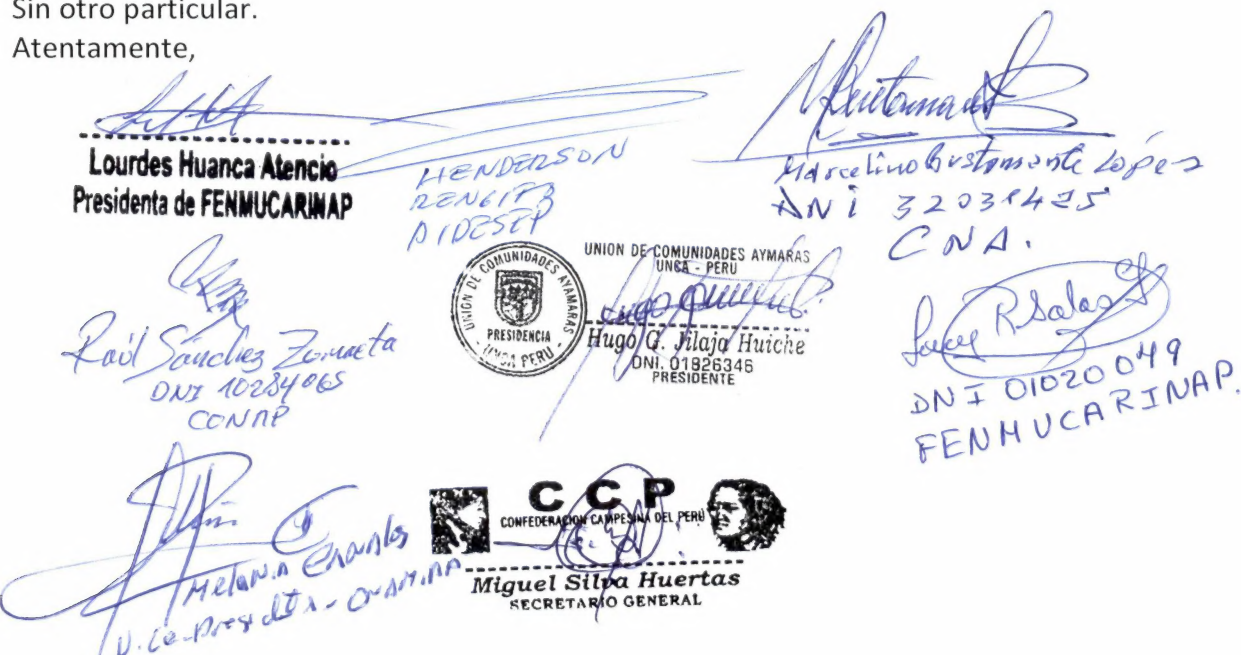 Sin otro particular.
Atentamente,
Lourdes Huanca Atencio
Presidenta de FENMUCARINAP
HENDERSON
RENGIFO
AIDESEP
Marcelino Bustamante López
DNI 32031425
CNA.
Raúl Sánchez
DNI 10284065
CONAP
UNION DE COMUNIDADES AYAMARAS
PRESIDENCIA
UNCA PERU
UNION DE COMUNIDADES AYMARAS
UNCA - PERU
Hugo G. Jilaja Huiche
DNI. 01826346
PRESIDENTE
R Salas
DNI 01020049
FENMUCARINAP.
Melania Canales
Vice-Presidenta - ONAMIAP
CCP
CONFEDERACION CAMPESINA DEL PERÚ
Miguel Silva Huertas
SECRETARIO GENERAL